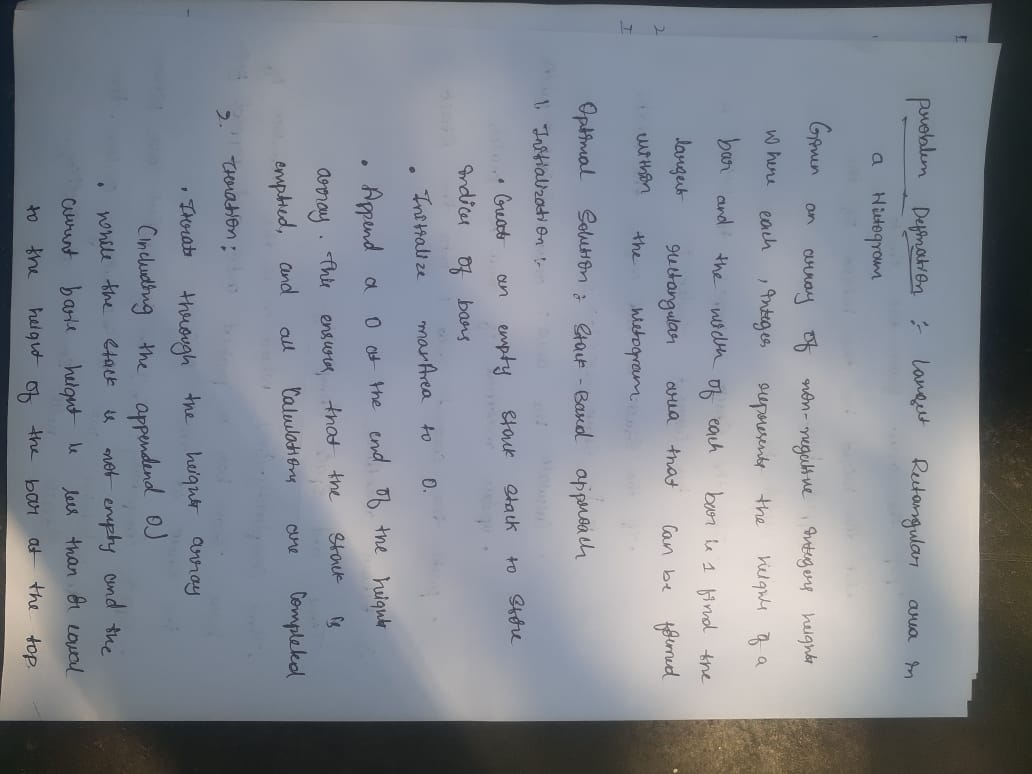 Problem Defination :- Largest Rectangular area in
a Histogram
Given an array of non-negative integers heights
where each integer represents the height of a
bar and the width of each bar is 1 find the
largest rectangular area that can be formed
within the histogram.
Optimal Solution : Stack-Based approach
1. Initialization :-
• Create an empty stack stack to store
indices of bars
• Initialize maxArea to 0.
• Append a 0 at the end of the height
array. This ensures that the stack is
emptied, and all calculations are completed
2. Iteration :
• Iterate through the height array
(including the appended 0)
• while the stack is not empty and the
current bar's height is less than or equal
to the height of the bar at the top.
2
I